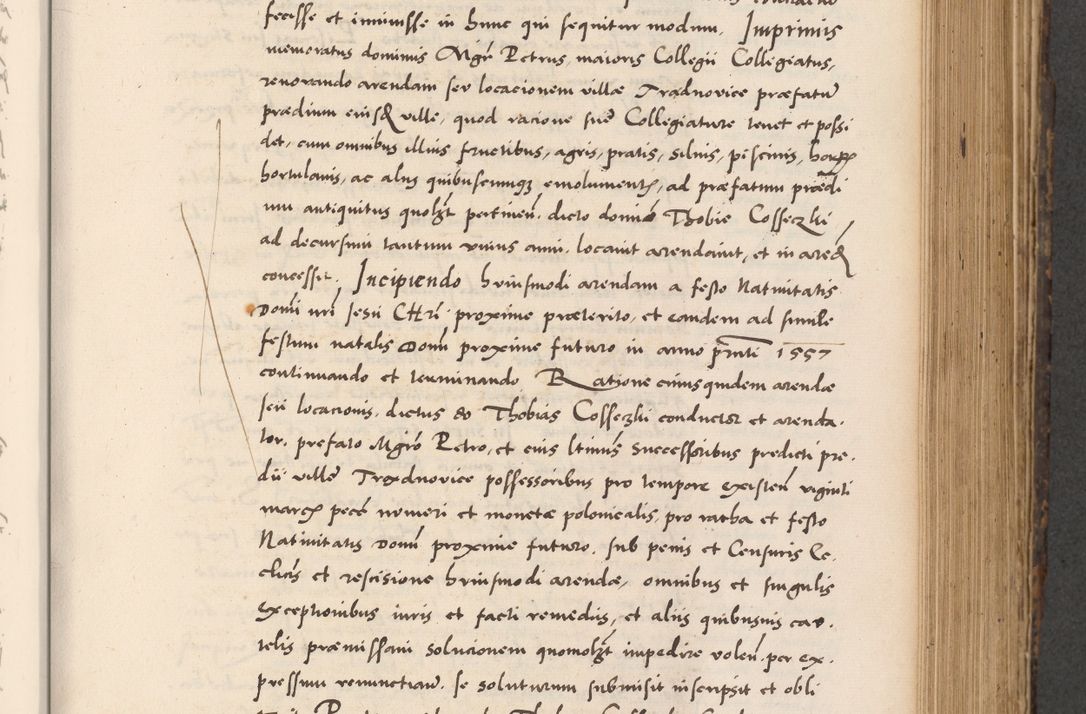 fecisse et iniuisse in hunc qui sequitur modum. Imprimis
memoratus dominus Mgr̃ Petrus, maioris Collegii Collegiatus,
renovando arendam seu locacionem villæ Trzdnovice præfatum
prædium eiusdem ville, quod racione sue Collegiature tenet et possi
det, cum omnibus illius fructibus, agris, pratis, silvis, piscinis,
hortulanis, ac aliis quibuscumque emolumentis, ad præfatum prædi
um antiquitus quolzt pertinen̄. dicto domino Thobie Cosseczki
ad decursum tantum unius anni. locavit arendavit, et in arend
concessit. Incipiendo huiusmodi arendam a festo Nativitatis
Domi nri Jesu Chri proxime præterito, et eandem ad simile
festum natalis Domi proxime futuro in anno prnti 1557
continuando et terminando Ratione cuius quidem arendæ
seu locacionis. dictus do Thobias Cosseczki conductor et arenda.
tor. prefato Mgro Petro, et eius ltimis successoribus predicti pre.
dii ville Trzdnovice possessoribus pro tempore existen̄ viginti
marcas pecc̄ numeri et monetæ polonicalis, pro ratha et festo
Nativitatis Domi proxime futuro. sub penis et Censuris Ec.
cliciis et rescisione huiusmodi arendæ, omnibus et singulis
exceptionibus iuris et facti remediis, et aliis quibusvis cau.
telis præmissam solucionem quomolzt impedire volen̄. per ex.
pressum renunctiavit. se soluturum submisit inscripsit et obli